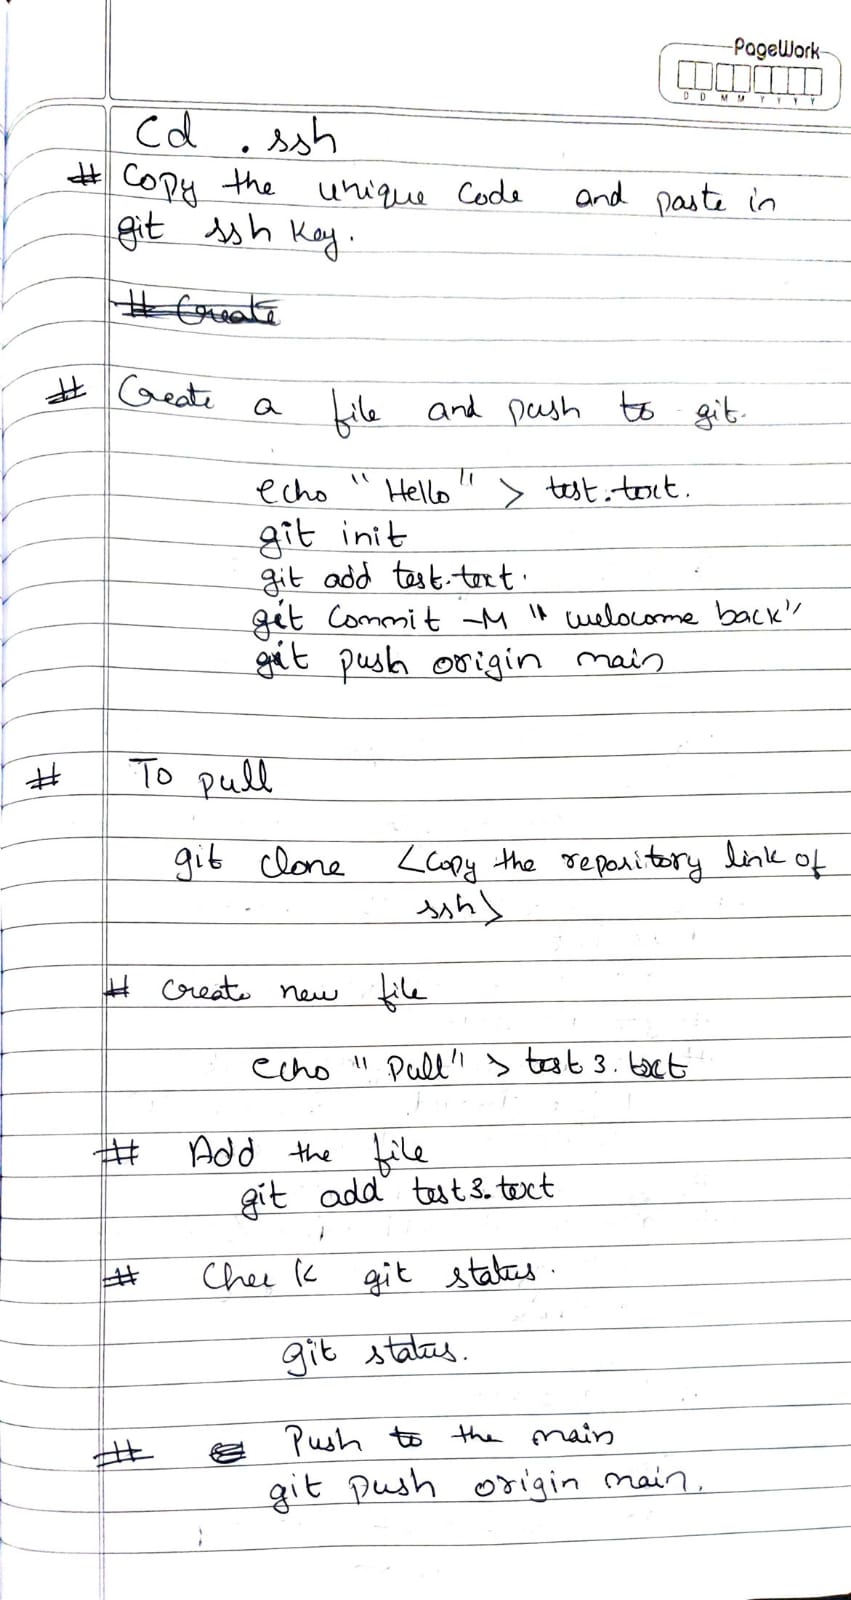 PageWork
D D M M Y Y Y Y
cd .ssh
# Copy the unique code and paste in
git ssh key.
# Create
# Create a file and push to git.
echo "Hello" > test.text.
git init
git add test.text.
git commit -M "welocome back"
git push origin main
# To pull
git clone <copy the repository link of
ssh>
# create new file
echo "Pull" > test3.text
# Add the file
git add test3.text
# Check git status.
git status.
# Push to the main
git push origin main.